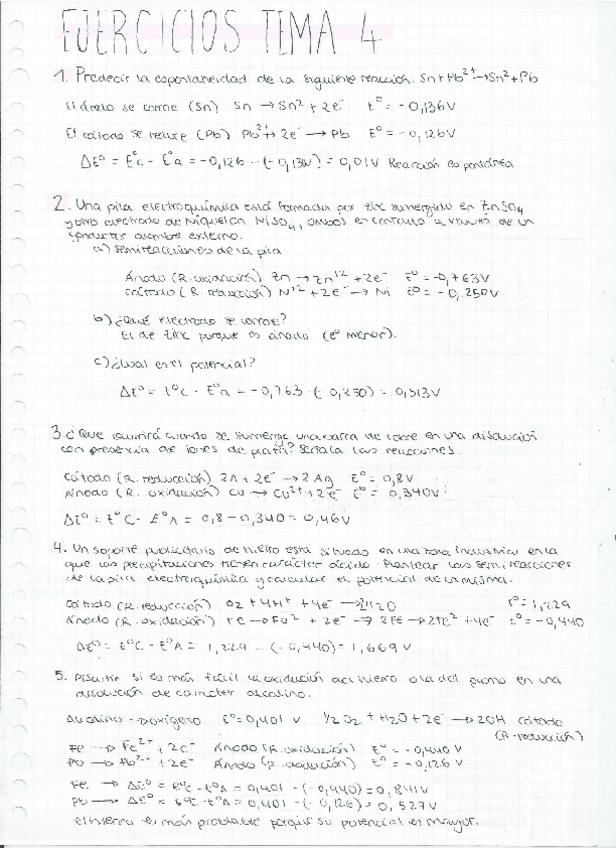 EJERCICIOS TEMA 4
1. Predecir la espontaneidad de la siguiente reacción. Sn + Pb²⁺ → Sn² + Pb
El ánodo se corroe (Sn) Sn → Sn² + 2e⁻ E° = -0,136V
El cátodo se reduce (Pb) Pb²⁺ + 2e⁻ → Pb E° = -0,126V
ΔE° = E°c - E°a = -0,126 - (-0,136) = 0,01V Reacción espontánea
2. Una pila electroquímica está formada por zinc sumergido en ZnSO₄
y otro electrodo de níquel con NiSO₄, ambos en contacto a través de un
conductor externo.
a) semireacciones de la pila
Ánodo (R. oxidación) Zn → Zn⁺² + 2e⁻ E° = -0,763V
Cátodo (R. reducción) Ni⁺² + 2e⁻ → Ni E° = -0,250V
b) ¿Qué electrodo se corroe?
El de zinc porque es ánodo (E° menor).
c) ¿Cuál es el potencial?
ΔE° = E°c - E°a = -0,763 - (-0,250) = 0,513V
3. ¿Que ocurrirá cuando se sumerge una barra de cobre en una disolución
con presencia de iones de plata? Señala las reacciones.
Cátodo (R. reducción) 2A + 2e⁻ → 2Ag E° = 0,8V
Ánodo (R. oxidación) Cu → Cu²⁺ + 2e⁻ E° = 0,340V
ΔE° = E°C - E°A = 0,8 - 0,340 = 0,46V
4. Un soporte publicitario de hierro está situado en una zona industrial en la
que las precipitaciones tienen carácter ácido. Plantear las semireacciones
de la pila electroquímica y calcular el potencial de la misma.
Cátodo (R. reducción) O₂ + 4H⁺ + 4e⁻ → 2H₂O E° = 1,229
Ánodo (R. oxidación) Fe → Fe² + 2e⁻ → 2Fe → 2Fe² + 4e⁻ E° = -0,440
ΔE° = E°C - E°A = 1,229 - (-0,440) = 1,669V
5. Discutir si es más fácil la oxidación del hierro o la del plomo en una
disolución de carácter alcalino.
Alcalino → oxígeno E° = 0,401 V ½O₂ + H₂O + 2e⁻ → 2OH Cátodo
(R. reducción)
Fe → Fe²⁺ + 2e⁻ Ánodo (R. oxidación) E° = -0,440 V
Pb → Pb²⁺ + 2e⁻ Ánodo (R. oxidación) E° = -0,126V
Fe → ΔE° = E°C - E°A = 0,401 - (-0,440) = 0,841V
Pb → ΔE° = E°C - E°A = 0,401 - (-0,126) = 0,527V
El hierro es más probable porque su potencial es mayor.